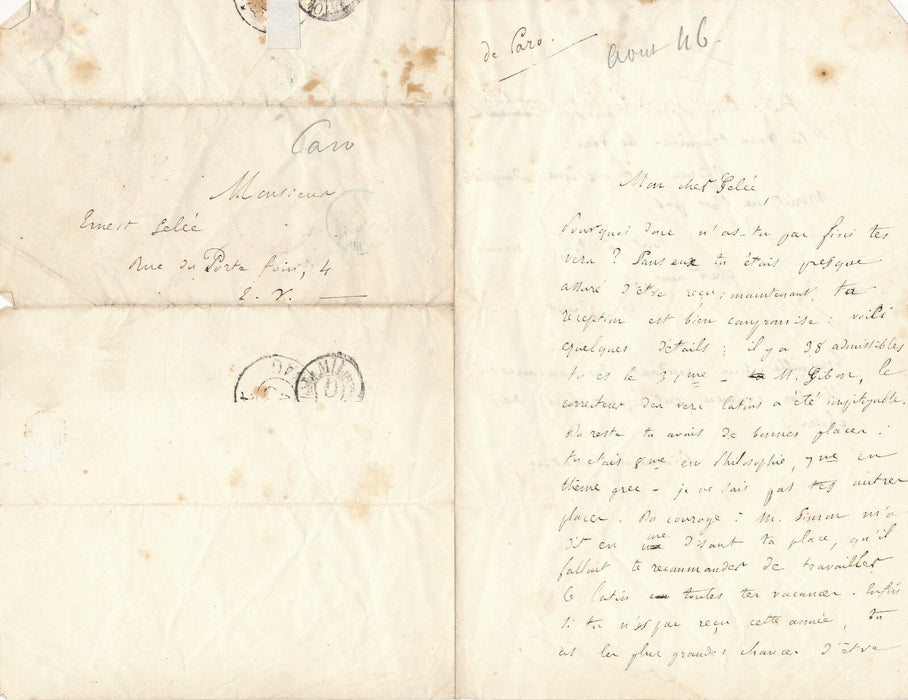 Caro
Monsieur
Ernest Gelée
Rue du Porte foin, 4
E. V.
de Caro.
Aout 46
Mon cher Gelée
Pourquoi donc n'as-tu pas fini tes
vers ? Sans eux tu étais presque
assuré d'être reçu ; maintenant, ta
réception est bien compromise : voilà
quelques détails : il y a 38 admissibles
tu es le 31me - M. Gibon, le
correcteur des vers latins a été impitoyable.
Du reste tu avais de bonnes places :
tu étais 8me en Philosophie, 9me en
thème grec - je ne sais pas tes autres
places. Du courage : M. Simon m'a
dit en me disant ta place, qu'il
fallait te recommander de travailler
le latin toutes tes vacances. Enfin
si tu n'es pas reçu cette année, tu
as les plus grandes chances d'être